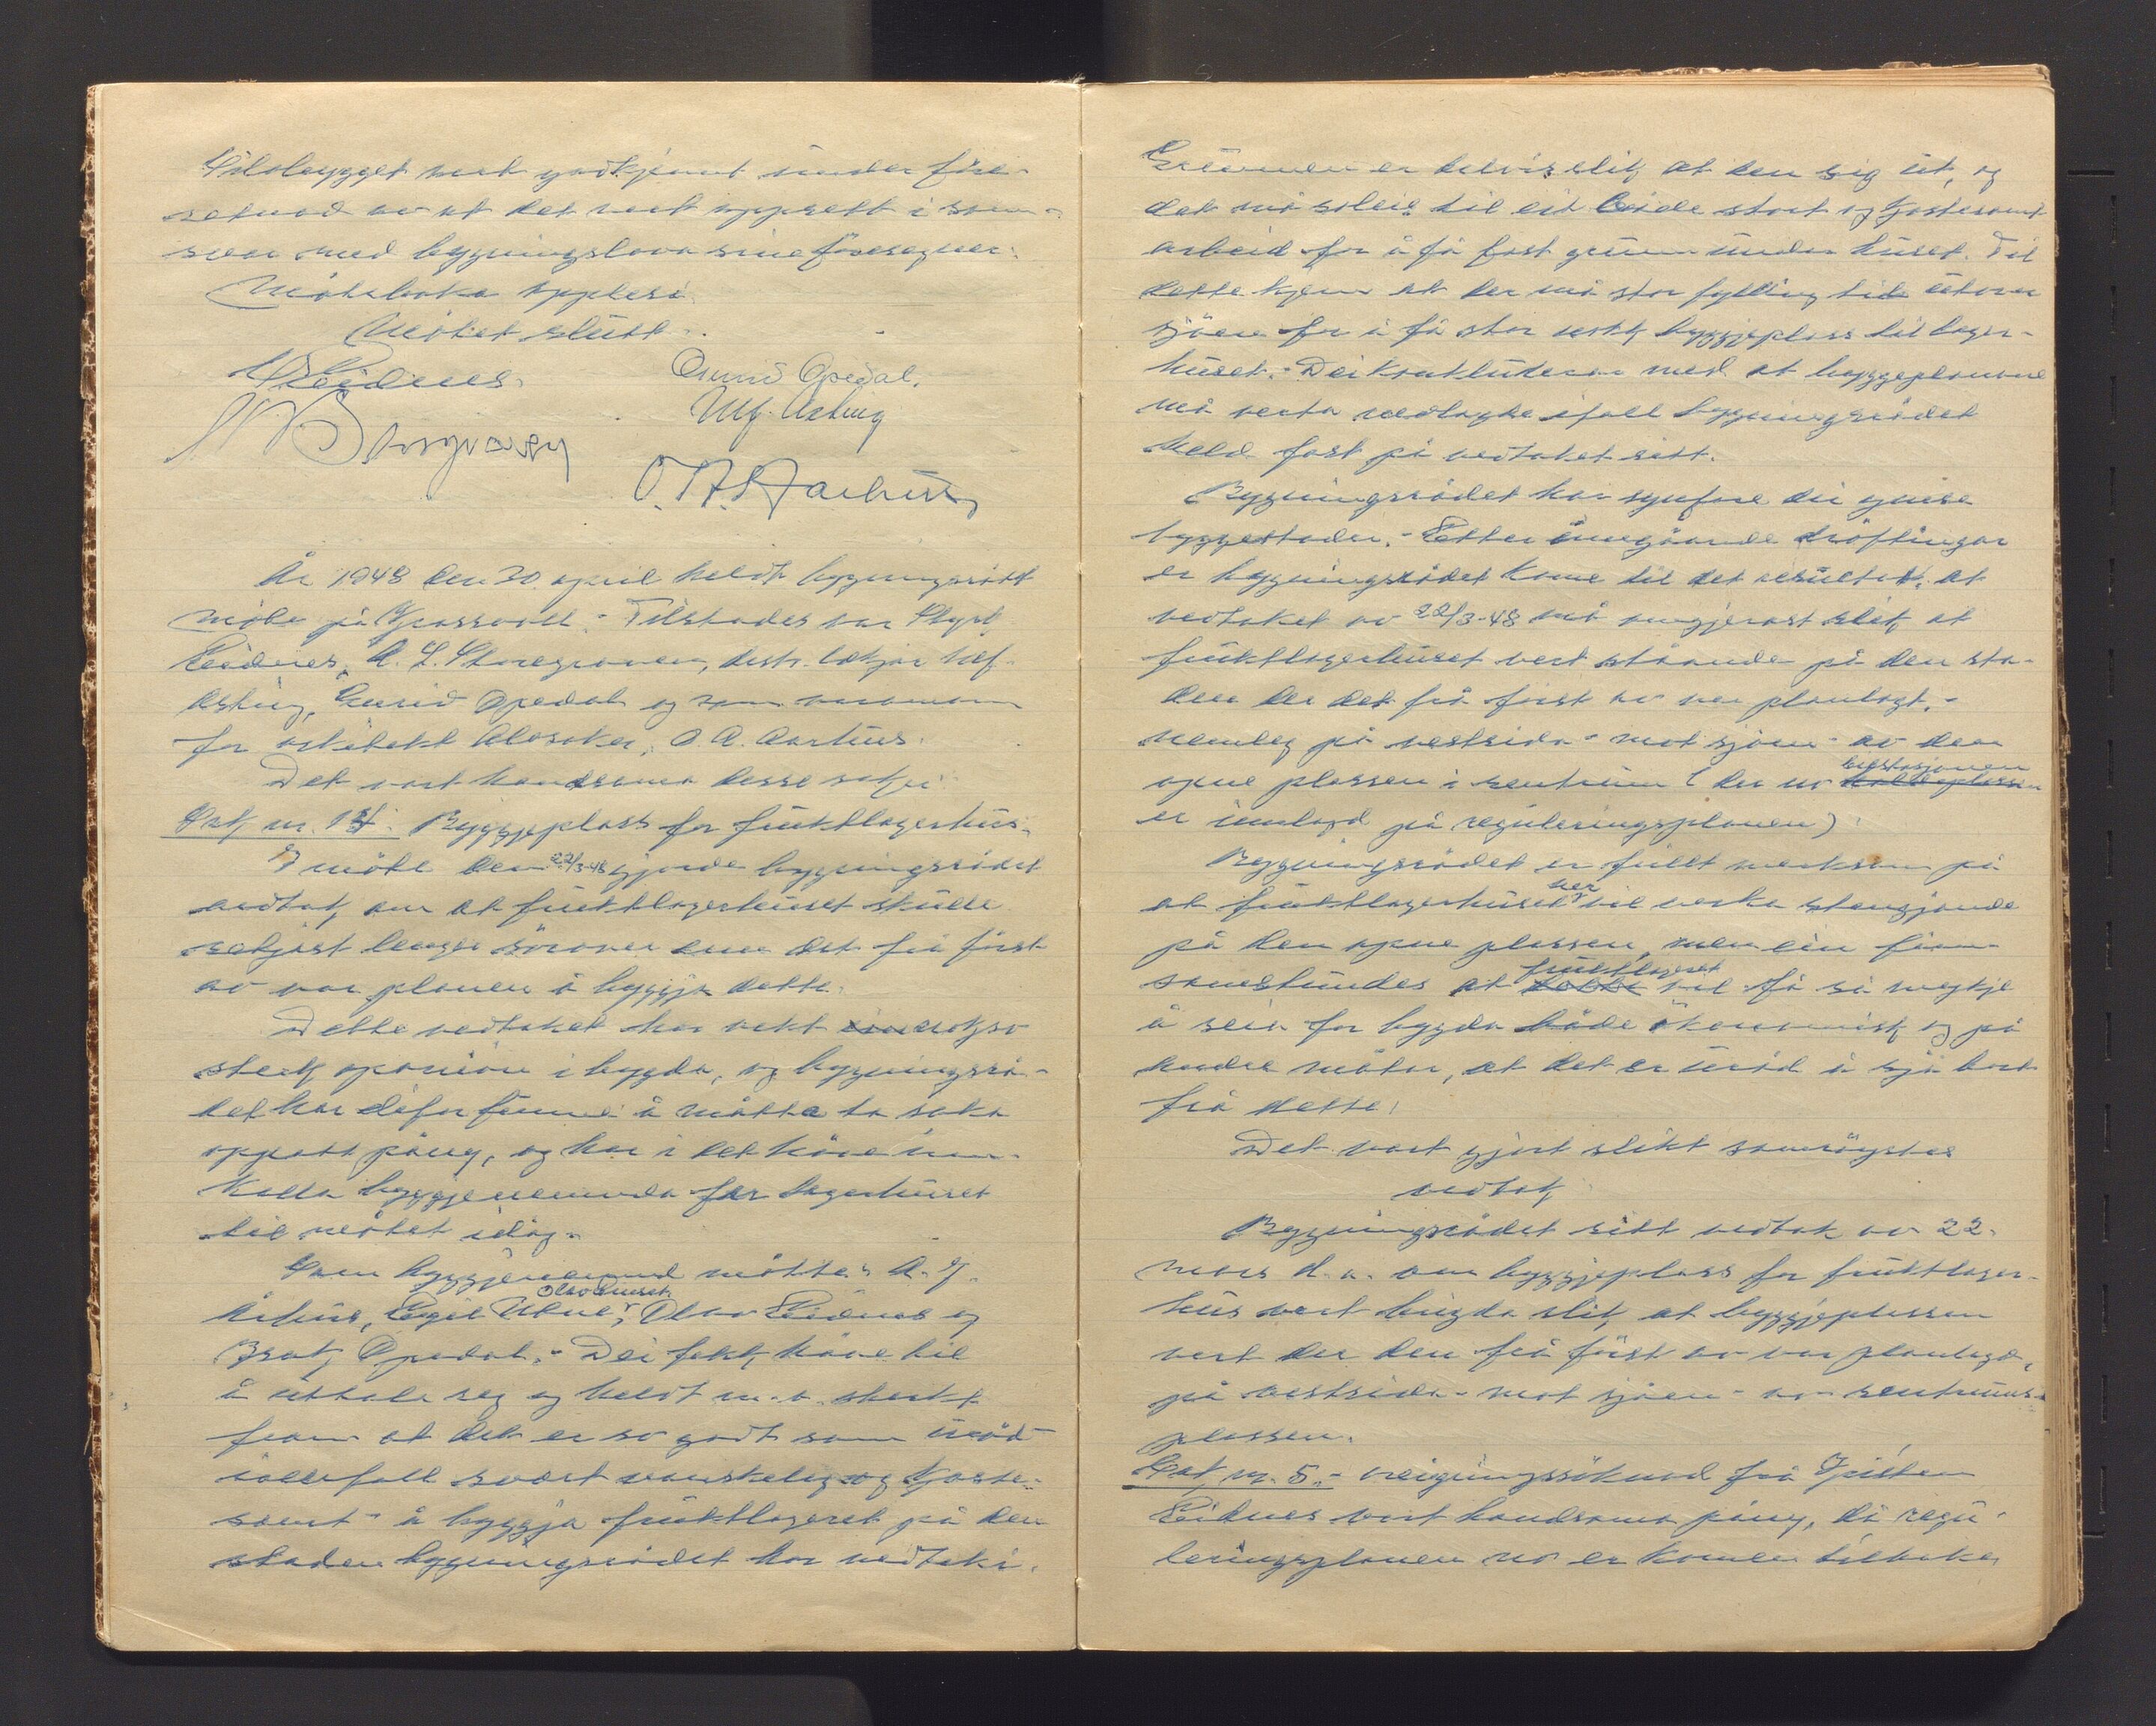 Silobygget vert godkjennt under fire-
setnad av at det vert oppsett i sam-
svar med bygningslova sine føresegner.
Møteboka opplesi.
Møtet slutt.
Eidnes.
Gunnd Opedal.
Ulf. Æsting
O. A. Aarhus
År 1948 den 20. april heldt bygningsrått
møte på Grassvoll. Tilstades var
Eidnes, A. L. Storegraven, distr. lækjar Ulf.
Æsting, Opedal og som varamann
for arkitekt Alsaker, O. A. Aarhus.
Det vart handsama desse saker
Sak nr. 14. Byggjeplass for fruktlagerhus.
I møte den 22/3-48 gjorde bygningsrådet
vedtak om at fruktlagerhuset skulle
setjast lenger sørover enn det frå først
av var planen å byggja dette.
Dette vedtaket har vekt ein rekje so
sterk oponion i bygda, og bygningsrå-
det har difor funne å måtte ta saka
oppatt påny, og har i det høve inn-
kalla byggjenemnda for lagerhuset
til møtet idag.
Som byggjenemnd møtte: A. J.
Århus, Egil Utne, Olav Eidnes og
Isak Opedal. - Dei fekk høve til
å uttale seg og heldt m.a. sterkt
fram at det er so godt som uråd -
iallefall svært vanskeleg og koste-
samt - å byggja fruktlageret på den
staden bygningsrådet har vedteki.
Grunnen er delvis slik at den sig ut, og
det må soleis til eit både stort og kostesamt
arbeid for å få fast grunn under huset. Til
dette kjem at der må stor fylling til utover
sjøen for å få stor nokk byggjeplass til lager-
huset. - Dei konkluderar med at byggeplanane
må verta nedlagde ifall bygningsrådet
held fast på vedtaket sitt.
Bygningsrådet har synfare dei ymise
byggestader. - Etter inngåande drøftingar
er bygningsrådet kome til det resultat, at
vedtaket av 22/3-48 må omgjerast slik at
fruktlagerhuset vert ståande på den sta-
den der det frå først av var planlagt. -
nemleg på vestsida - mot sjøen - av den
opne plassen i sentrum (der no bilstasjonen
er innlagd på reguleringsplanen).
Bygningsrådet er fullt merksam på
at fruktlagerhuset her vil verka stengjande
på den opne plassen, men ein finn
samstundes at fruktlageret vil få så mykje
å seia for bygda både økonomisk og på
andre måtar, at det er uråd å sjå bort
frå dette.
Det vart gjort slikt samrøystes
vedtak
Bygningsrådet sitt vedtak av 22.
mars d.å. om byggjeplass for fruktlager-
hus vert brigda slik at byggjeplassen
vert der den frå først av var planlagd,
på vestsida - mot sjøen - av sentrums-
plassen.
Sak nr. 5. -
Eidnes vart handsama påny, då regu-
leringsplanen no er komen tilbake